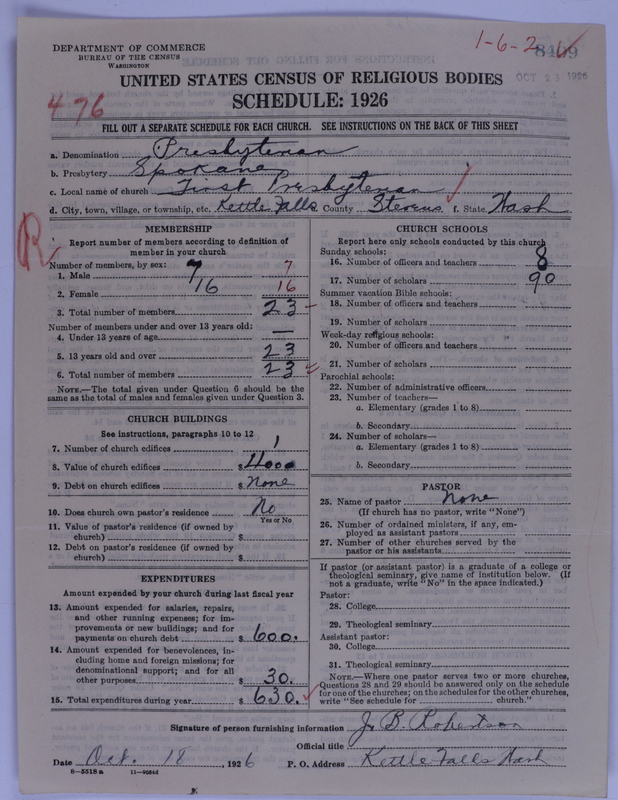 DEPARTMENT OF COMMERCE
BUREAU OF THE CENSUS
WASHINGTON
1-6-2
8409
OCT 23 1926
UNITED STATES CENSUS OF RELIGIOUS BODIES
SCHEDULE: 1926
476
FILL OUT A SEPARATE SCHEDULE FOR EACH CHURCH. SEE INSTRUCTIONS ON THE BACK OF THIS SHEET
a. Denomination Presbyterian
b. Presbytery Spokane
c. Local name of church First Presbyterian
d. City, town, village, or township, etc. Kettle Falls County Stevens f. State Wash
R
MEMBERSHIP
Report number of members according to definition of
member in your church
Number of members, by sex:
1. Male 7 7
2. Female 16 16
3. Total number of members 23
Number of members under and over 13 years old:
4. Under 13 years of age —
5. 13 years old and over 23
6. Total number of members 23
NOTE.—The total given under Question 6 should be the
same as the total of males and females given under Question 3.
CHURCH BUILDINGS
See instructions, paragraphs 10 to 12
7. Number of church edifices 1
8. Value of church edifices $4000
9. Debt on church edifices $None
10. Does church own pastor's residence No
Yes or No
11. Value of pastor's residence (if owned by
church) $
12. Debt on pastor's residence (if owned by
church) $
EXPENDITURES
Amount expended by your church during last fiscal year
13. Amount expended for salaries, repairs,
and other running expenses; for im-
provements or new buildings; and for
payments on church debt $600.
14. Amount expended for benevolences, in-
cluding home and foreign missions; for
denominational support; and for all
other purposes $30.
15. Total expenditures during year $630.
CHURCH SCHOOLS
Report here only schools conducted by this church
Sunday schools:
16. Number of officers and teachers 8
17. Number of scholars 90
Summer vacation Bible schools:
18. Number of officers and teachers
19. Number of scholars
Week-day religious schools:
20. Number of officers and teachers
21. Number of scholars
Parochial schools:
22. Number of administrative officers
23. Number of teachers—
a. Elementary (grades 1 to 8)
b. Secondary
24. Number of scholars—
a. Elementary (grades 1 to 8)
b. Secondary
PASTOR
25. Name of pastor None
(If church has no pastor, write "None")
26. Number of ordained ministers, if any, em-
ployed as assistant pastors
27. Number of other churches served by the
pastor or his assistants
If pastor (or assistant pastor) is a graduate of a college or
theological seminary, give name of institution below. (If
not a graduate, write "No" in the space indicated.)
Pastor:
28. College
29. Theological seminary
Assistant pastor:
30. College
31. Theological seminary
NOTE.—Where one pastor serves two or more churches,
Questions 28 and 29 should be answered only on the schedule
for one of the churches; on the schedules for the other churches,
write "See schedule for church."
Signature of person furnishing information J. B. Robertson
Official title
Date Oct. 18, 1926 P. O. Address Kettle Falls Wash
8—5518 a 11—9084d